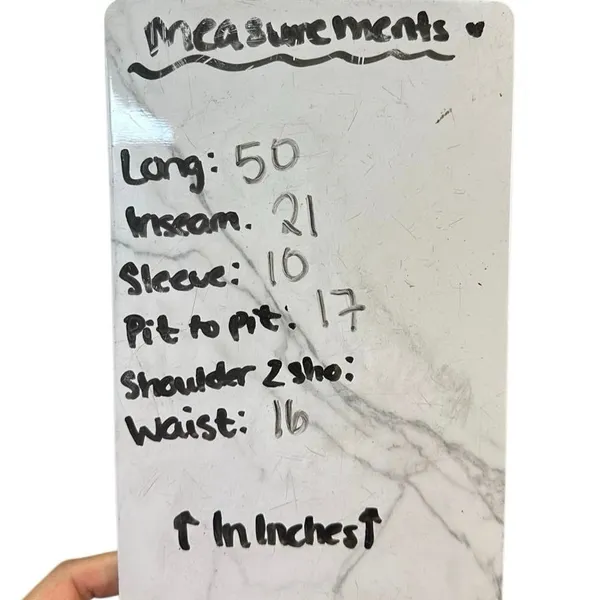 Measurements
Long: 50
Inseam. 21
Sleeve: 10
Pit to pit: 17
Shoulder 2 sho:
Waist: 16
↑ In Inches ↑